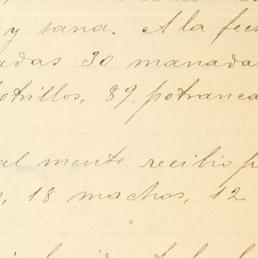 y sana. A la fec
adas 30 manada
otrillos, 89. potranca
al mente recibio p
, 18 machos, 12